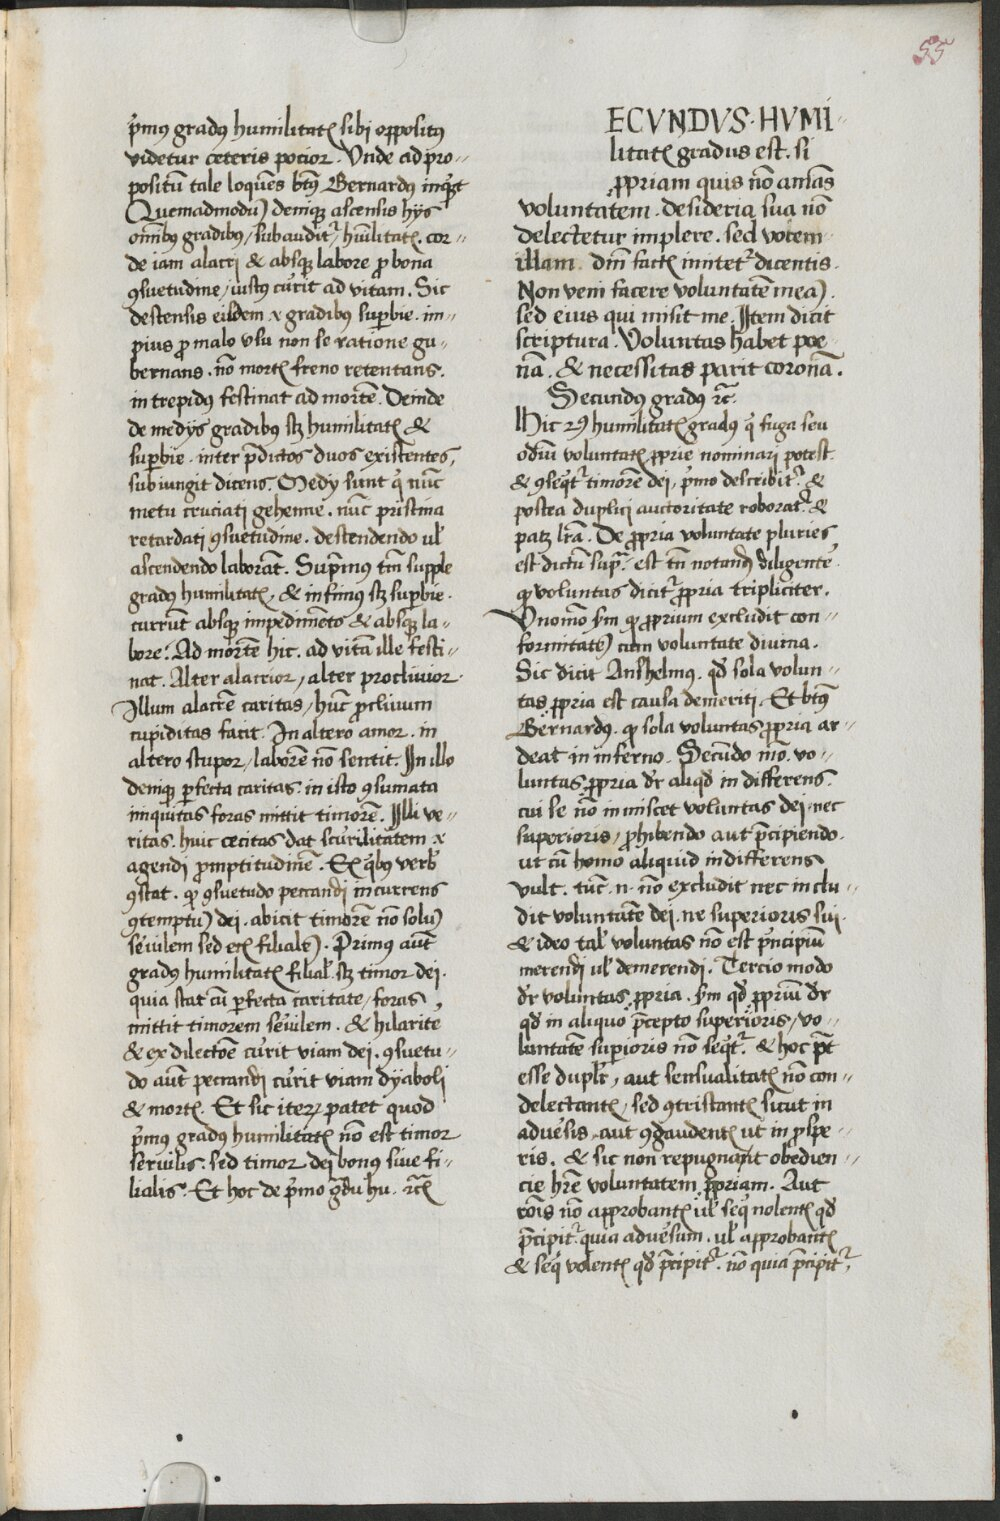 55
p̄mꝰ gradꝰ humilitatꝭ sibi oppositꝰ
videtur ceteris potior. Vnde ad pro-
positū tale loquēs btꝰ Bernardꝰ inqͥt
Quemadmodū deniqꝫ ascensis hijs
om̄ibꝰ gradibꝰ / subauditᷣ humilitatꝭ. cor-
de iam alacri & absqꝫ labore ꝓ bona
ꝯsuetudine / iustꝰ currit ad vitam. Sic
descensis eisdem x gradibꝰ suꝑbie. im-
pius ꝓ malo vsu non se ratione gu-
bernans. nō mortꝭ freno retentans.
intrepidꝰ festinat ad mortē. Deinde
de medijs gradibꝰ sꝫ humilitatꝭ &
suꝑbie. inter p̄dictos duos existentes,
subiungit dicens. Medij sunt qͥ nūc
metu cruciati gehenne. nūc pristina
retardati ꝯsuetudine. descendendo ul̄
ascendendo laborāt. Sup̄mus tm̄ supple
gradꝰ humilitatꝭ, & infimus sꝫ suꝑbie.
currūt absqꝫ impedimēto & absqꝫ la-
bore. Ad mortē hic. ad vitā ille festi-
nat. Alter alacrior / alter procliuior.
Illum alacrē caritas / hūc ꝓcliuum
cupiditas facit. In altero amor. in
altero stupor / laborē nō sentit. In illo
deniqꝫ ꝑfecta caritas. in isto ꝯsumata
iniquitas foras mittit timorē. Illi ve-
ritas. huic cecitas dat securitatem. x
agendi ꝓmptitudinē. Ex qͥbꝰ verb̄
ꝯstat. ꝙ ꝯsuetudo peccandi incurrens
ꝯtemptū dei. abicit timorē nō solū
seruilem sed ecī filialē. Primus aūt
gradꝰ humilitatꝭ filial̄ sꝫ timor dei.
quia stat cū ꝑfecta caritate / foras
mittit timorem seruilem. & hilarite͛
& ex dilectōe currit viam dei. ꝯsuetu-
do aūt peccandi currit viam dyaboli
& mortꝭ. Et sic iterꝝ patet quod
p̄mꝰ gradꝰ humilitatꝭ nō est timor
seruilis. sed timor dei bonꝰ siue fi-
lialis. Et hoc de p̄mo gͣdu hu. ꝛcꝭ
ECVNDVS. HVMI-
litatꝭ gradus est. si
ꝓpriam quis nō amās
voluntatem. desideria sua nō
delectetur implere. sed vocem
illam dm̄ factꝭ imitetᷣ dicentis.
Non veni facere voluntatē meā.
sed eius qui misit me. Item dicit
scriptura. Voluntas habet poe-
nā. & necessitas parit coronā.
Secundus gradꝰ ꝛc̄.
Hic 2ꝰ humilitatꝭ gradꝰ qͥ fuga seu
odiū voluntatꝭ ꝓprie nominari potest.
& ꝯseqͥtᷣ timorē dei, p̄mo describitᷣ. &
postea duplici auctoritate roboratᷣ. &
patꝫ lr̄a. De ꝓpria voluntate pluries
est dictū supͣ. est tn̄ notandꝰ diligente͛.
ꝙ voluntas dicitᷣ ꝓpria tripliciter.
Vno mō sm̄ ꝙ ꝓprium excludit con-
formitatē cum voluntate diuina.
Sic dicit Anshelmꝰ. qđ sola volun-
tas ꝓpria est causa demeriti. Et btꝰ
Bernardꝰ. ꝙ sola voluntas ꝓpria ar-
deat in inferno. Secūdo mō. vo-
luntas ꝓpria dr̄ aliqđ indifferens
cui se nō inmiscet voluntas dei. nec
superioris / ꝓhibendo aut p̄cipiendo.
ut cū homo aliquid indifferens
vult. tūc .n. nō excludit nec inclu-
dit voluntatē dei. ne superioris sui.
& ideo tal̄ voluntas nō est pͥncipiū
merendi ul̄ demerendi. Tercio modo
dr̄ voluntas ꝓpria. sm̄ qđ ꝓpriū dr̄
qđ in aliquo p̄cepto superioris / vo-
luntatē suꝑioris nō seqͥtᷣ. & hoc pt̄
esse duplr̄, aut sensualitatꝭ nō con-
delectantꝭ, sed ꝯtristantꝭ sicut in
aduersis. aut ꝯgaudentꝭ ut in ꝓspe-
ris. & sic non repugnant obedien-
cie hr̄e voluntatem ꝓpriam. Aut
rōis nō approbantꝭ ul̄ seqͥ nolentꝭ qđ
p̄cipitᷣ. quia aduersum. ul̄ approbantꝭ
& seqͥ volentꝭ qđ p̄cipitᷣ. nō quia p̄cipitᷣ,